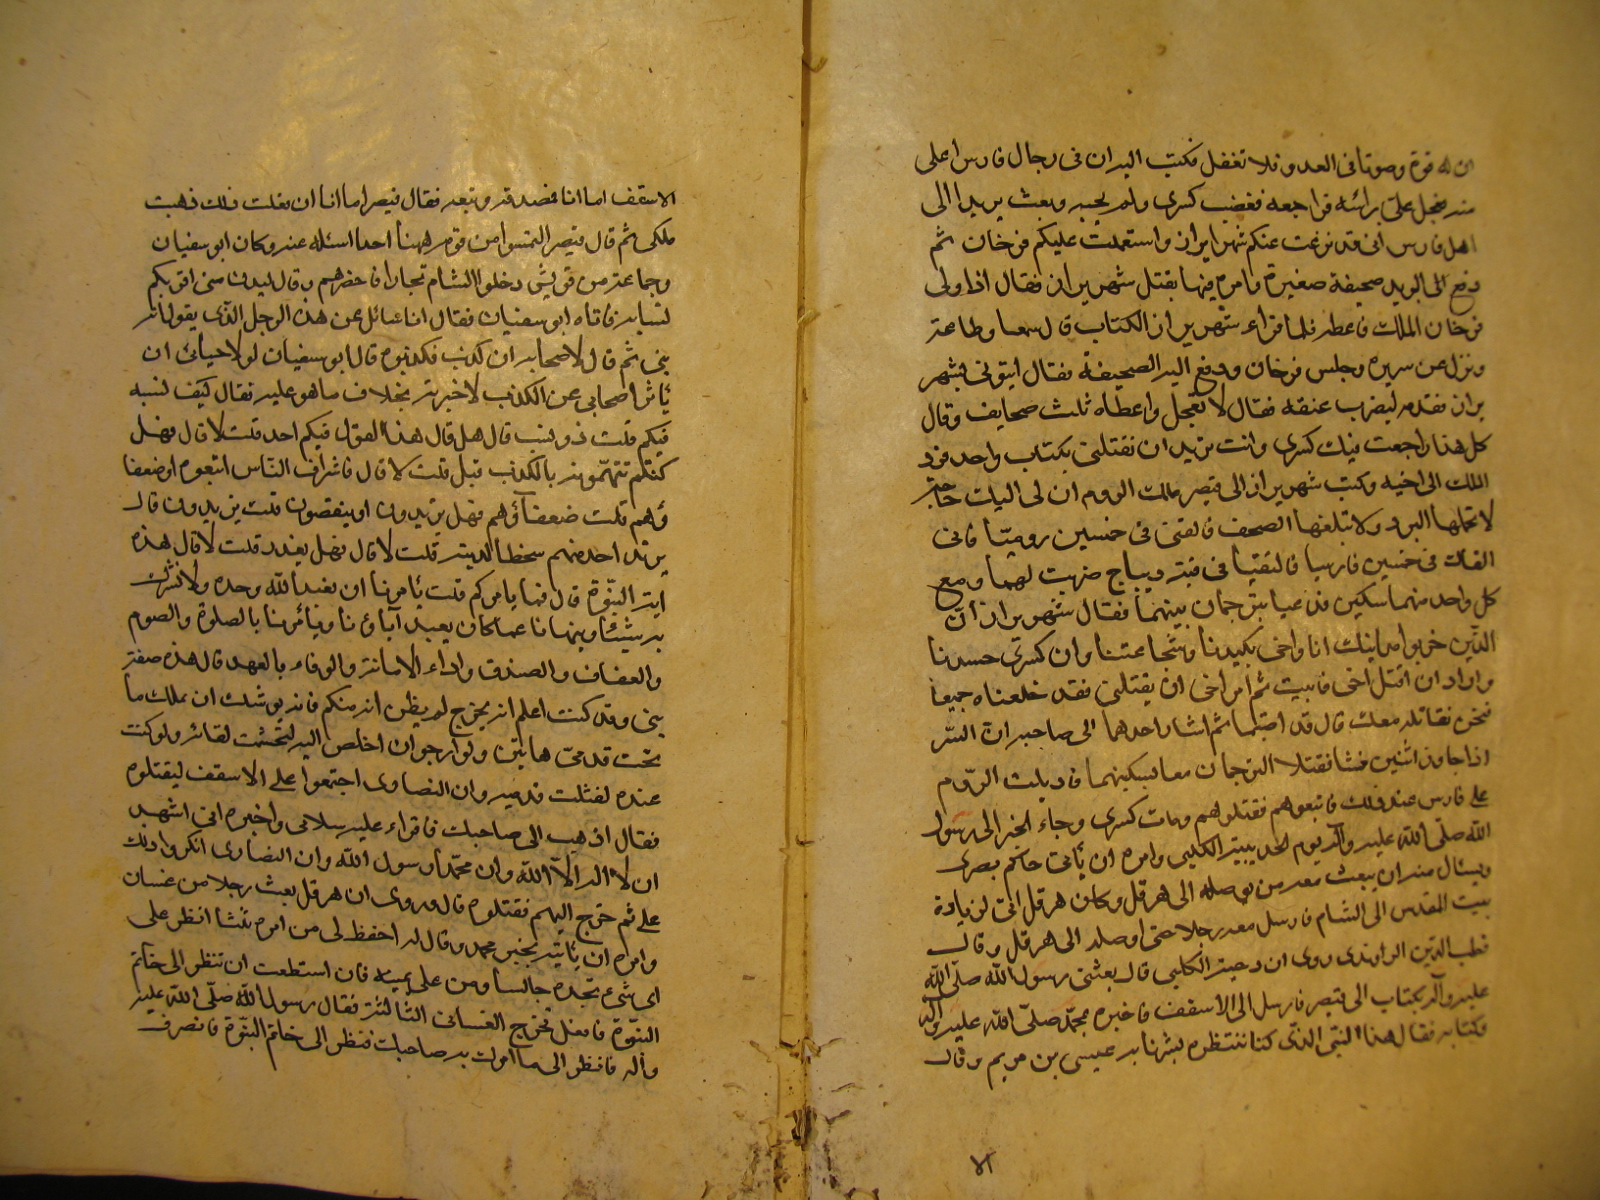 ان له قوة وصوتا فى العدو فلا تفعل فكتب اليه ان فى رجال فارس اعلى
منه فعجل على برائسه فراجعه فغضب كسرى ولم يجبه وبعث بريدا الى
اهل فارس انى قد نزعت عنكم شهريران واستعملت عليكم فرخان ثم
دفع الى البريد صحيفة صغيرة وامره فيها بقتل شهريران فقال اذا ولى
فرخان الملك فاعطه فلما قراء شهريران الكتاب قال سمعا وطاعة
ونزل عن سريره وجلس فرخان ودفع اليه الصحيفة فقال ايتونى بشهر
يران فقدمه ليضرب عنقه فقال لا تعجل واعطاه ثلث صحايف وقال
كل هذا راجعت فيك كسرى وانت تريد ان تقتلنى بكتاب واحد فرد
الملك الى اخيه وكتب شهريران الى قيصر ملك الروم ان لى اليك حاجة
لا تحملها البرد ولا تبلغها الصحف فالقنى فى خمسين روميا فانى
القاك فى خمسين فارسيا فالتقيا فى قبة ديباج ضربت لهما ومع
كل واحد منهما سكين فدعيا بترجمان بينهما فقال شهريران ان
الذين خربوا مداينك انا واخى بكيدنا وشجاعتنا وان كسرى حسدنا
واراد ان اقتل اخى فابيت ثم امر اخى ان يقتلنى فقد خلعناه جميعا
فنحن نقاتله معك قال قد اصبتما ثم اشار احدهما الى صاحبه ان السر
اذا جاوز اثنين فشا فقتلا الترجمان معا بسكينهما فاديلت الروم
على فارس عند ذلك فاتبعوهم فقتلوهم ومات كسرى وجاء الخبر الى رسول
الله صلى الله عليه وآله يوم الحديبية الكلبى وامره ان يأتى حاكم بصرى
ويسئال منه ان يبعث معه من يوصله الى هرقل وكان هرقل اتى لزيادة
بيت المقدس الى الشام فارسل معه رجلا حتى اوصله الى هرقل وقال
قطب الدين الراوندى روى ان دحية الكلبى قال بعثنى رسول الله صلى الله
عليه وآله بكتاب الى قيصر فارسل الى الاسقف فاخبره بمحمد صلى الله عليه وآله
وكتابه فقال هذا النبى الذى كنا ننتظره بشرنا به عيسى بن مريم وقال
الاسقف اما انا فمصدقه ومتبعه فقال قيصر اما انا ان فعلت ذلك ذهبت
ملكى ثم قال قيصر التمسوا من قومه ههنا احدا اسئله عنه وكان ابو سفيان
وجماعة من قريش دخلوا الشام تجارا فاحضرهم وقال ليدن منى اقربكم
نسبا به فاتاه ابو سفيان فقال انا سائل عن هذا الرجل الذى يقول انه
نبى ثم قال لاصحابه ان كذب فكذبوه قال ابو سفيان لولا حيائى ان
يأثر اصحابى عن الكذب لاخبرته بخلاف ما هو عليه فقال كيف نسبه
فيكم قلت ذو نسب قال هل قال هذا القول فيكم احد قلت لا قال فهل
كنتم تتهمونه بالكذب قبل قلت لا قال فاشراف الناس اتبعوه او ضعفا
ؤهم قلت ضعفاؤهم فهل يزيدون او ينقصون قلت يزيدون قال
يرتد احد منهم سخطا لدينه قلت لا قال فهل يغدر قلت لا قال هذه
اية النبوة قال فما يامركم قلت يأمرنا ان نعبد الله وحده ولا نشرك
به شيئا وينهانا عما كان يعبد آباؤنا ويأمرنا بالصلوة والصوم
والعفاف والصدق واداء الامانة والوفاء بالعهد قال هذه صفة
نبى وقد كنت اعلم انه يخرج لم يظن انه منكم فانه يوشك ان يملك ما
تحت قدمى هاتين ولو ارجو ان اخلص اليه لتجشمت لقائه ولو كنت
عنده لغسلت قدميه وان النصارى اجتمعوا على الاسقف ليقتلوه
فقال اذهب الى صاحبك فاقراء عليه سلامى واخبره انى اشهد
ان لا اله الا الله وان محمدا رسول الله وان النصارى انكروا ذلك
على ثم خرج اليهم فقتلوه قال وروى ان هرقل بعث رجلا من غسان
وامره ان يأتيه بخبر محمد وقال له احفظ لى من امره ثلثا انظر على
اى شىء تجده جالسا ومن على يمينه فان استطعت ان تنظر الى خاتم
النبوة فافعل فخرج الغسانى الثالثة فقال رسول الله صلى الله عليه
وآله فانظر الى ما امرت به صاحبك فنظر الى خاتم النبوة فانصرف